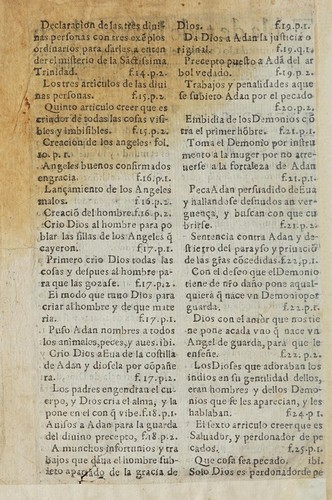 Declaracion de las tres divi
nas personas con tres exẽplos
ordinarios para darles a enten
der el misterio de la Sãctissima
Trinidad. f.14.p.2.
Los tres articulos de las diui
nas personas. f.15.p.2.
Quinto articulo creer que es
criador de todas las cosas visi-
bles y imbisibles. f.15.p.2.
Creacion de los angeles. fol.
20. p. 1.
Angeles buenos confirmados
en gracia. f.16.p.1.
Lançamiento de los Angeles
malos. f.16.p.2.
Creaciõ del hombre. f.16.p.2.
Crio Dios al hombre para po
blar las sillas de los Angeles q̃
cayeron. f.17.p.1.
Primero crio Dios todas las
cosas y despues al hombre pa-
ra que las gozase. f.17.p.1.
El modo que tuuo Dios para
criar al hombre y de que mate
ria. f.17.p.1.
Puso Adan nombres a todos
los animales, peces, y aues. ibi.
Crio Dios a Eua de la costilla
de Adan y diosela por cõpañe
ra. f.17.p.2.
Los padres engendran el cu-
erpo, y Dios cria el alma, y la
pone en el con q̃ vibe. f.18.p.1.
Auisos a Adan para la guarda
del diuino precepto, f.18.p.2.
A munchos infortunios y tra
bajos que dana el hombre sub-
jeto apartado de la gracia de
Dios. f.19.p.1.
Da Dios a Adan la justicia o
riginal. f.19.q.1.
Precepto puesto a Adã del ar
bol vedado. f.19.p.2.
Trabajos y penalidades a que
se subjeto Adan por el pecado
f.20.p.2.
Embidia de los Demonios cõ
tra el primer hõbre. f.21.p.1.
Toma el Demonio por instru
mento a la muger por no atre-
uerse a la fortaleza de Adan
f.21.p.1.
Peca Adan persuadido de Eua
y hallandose desnudos an ver-
guença, y buscan con que cu
brirse. f.21.p.
Sentencia contra Adan y de-
stierro del parayso y priuaciõ
de las grãs cõcedidas. f.22,p.1.
Con el deseo que el Demonio
tiene de ñro daño pone a qual-
quiera q̃ nace vn Demonio por
guarda, f.22.p.1.
Dios con el amor que nos tie
ne pone a cada vno q̃ nace vn
Angel de guarda, para que le
enseñe. f.22. p.2.
Los Dioses que adoraban los
indios en su gentilidad dellos,
eran hombres y dellos Demo-
nios que se les aparecian, y les
hablaban. f.24.p 1.
El sexto articulo creer que es
Saluador, y perdonador de pe
cados. f.25.p.1.
Que cosa sea pecado. ibi.
Solo Dios es perdonador de pe